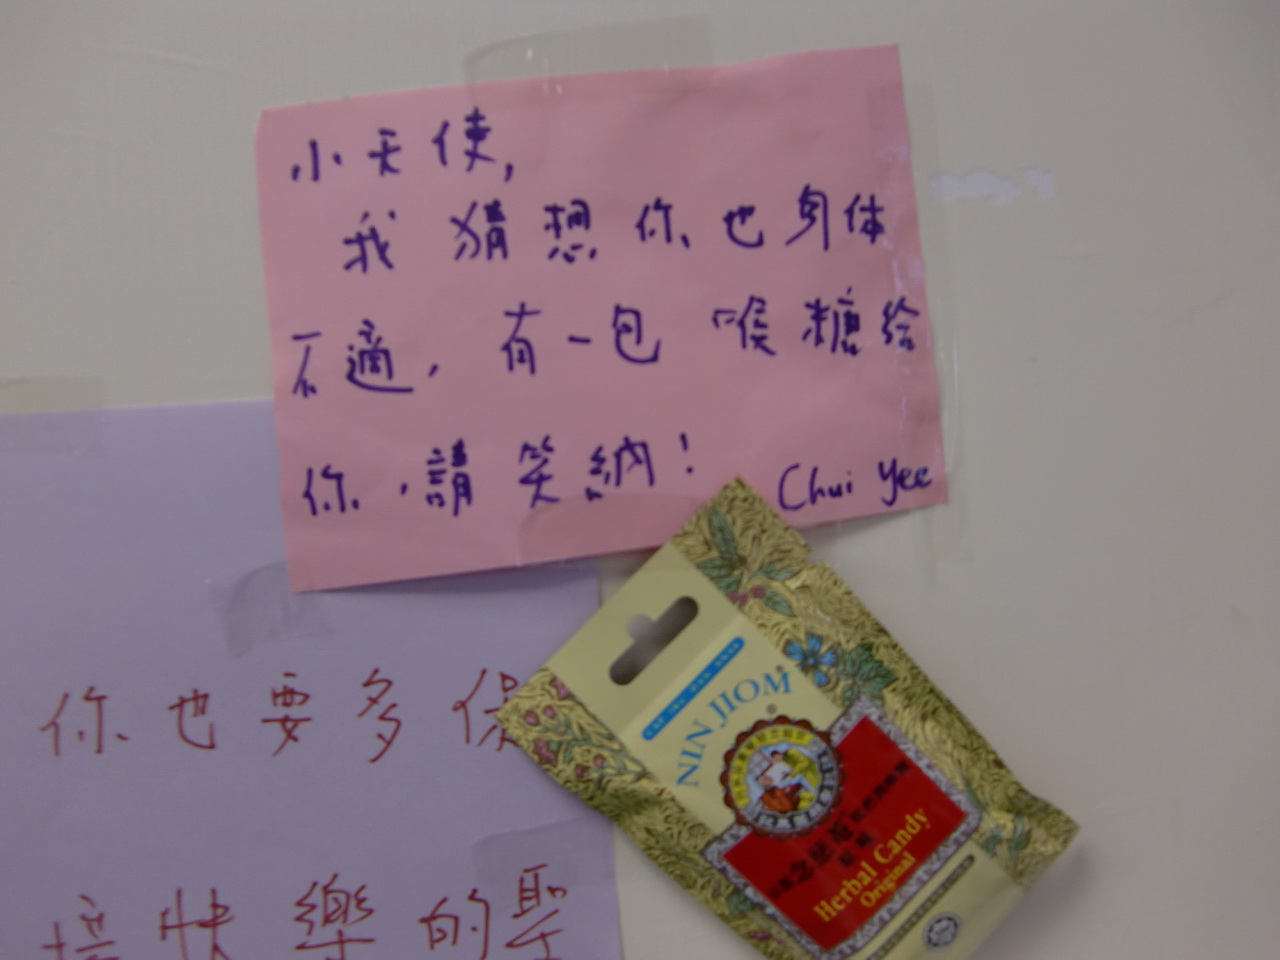 小天使,
我猜想你也身体
不適，有一包喉糖给
你，請笑納！
Chui Yee
你也要多保
快樂的聖
NIN JIOM
Herbal Candy
Original